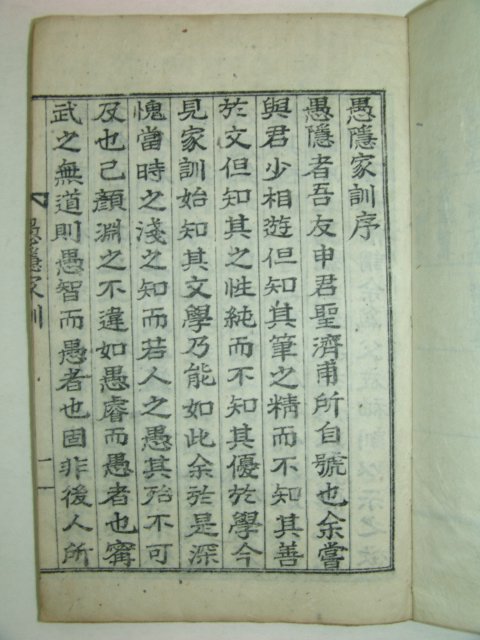 愚隱家訓序
愚隱者吾友申君聖濟甫所自號也余嘗
與君少相遊但知其筆之精而不知其善
於文但知其之性純而不知其優於學今
見家訓始知其文學乃能如此余於是深
愧當時之淺之知而若人之愚其殆不可
及也已顔淵之不違如愚睿而愚者也甯
武之無道則愚智而愚者也固非後人所
愚隱家訓